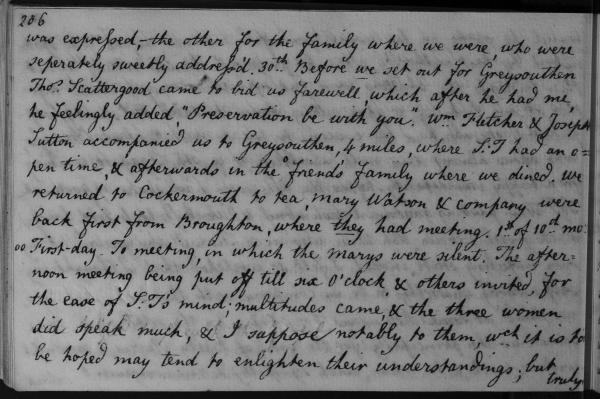 206
was expressed,- the other for the family where we were, who were
seperately sweetly address'd. 30th Before we set out for Greysouthen
Thos. Scattergood came to bid us farewell, which after he had me,
he feelingly added, "Preservation be with you". Wm Fletcher & Joseph
Sutton accompanied us to Greysouthen, 4 miles, where S:T had an o=
pen time, & afterwards in the friend's family where we dined. We
returned to Cockermouth to tea, Mary Watson & company were
back first from Broughton, where they had meeting. 1st of 10th mo.
oo First-day. To meeting, in which the marys were silent. The after=
noon meeting being put off till six o'clock, & others invited, for
the ease of S.T's mind; multitudes came, & the three women
did speak much, & I suppose notably to them, wch it is to
be hoped may tend to enlighten their understandings; but
truly